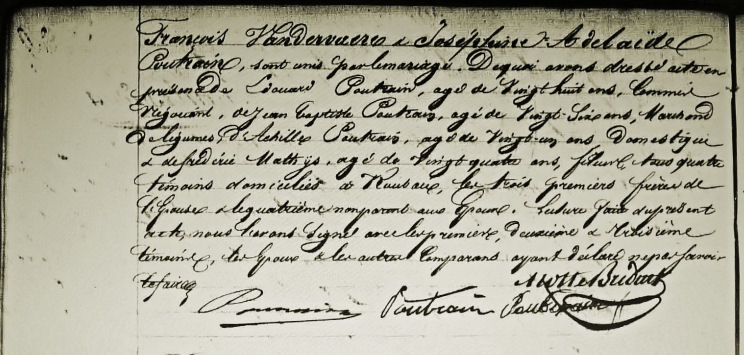 François Vandervaere & Joséphine Adelaïde
Poutrain, sont unis par le mariage. De quoi avons dressé acte en
présence de Édouard Poutrain, agé de Vingt huit ans, Commis
Négociant, de Jean Baptiste Poutrain, agé de Vingt-Six ans, Marchand
de légumes, d'Achille Poutrain, agé de Vingt-un ans, Domestique
& de frédéric Mathys, agé de Vingt quatre ans, fileur, tous quatre
témoins domiciliés à Roubaix, les trois premiers frères de
l'Epouse & le quatrième non parent aux Epoux. Lecture faite du présent
acte, nous l'avons signé avec les premier, deuxième & troisième
témoins, les Epoux & les autres Comparans ayant déclaré ne pas savoir
le faire
Motte Bredart
Poutrain Poutrain